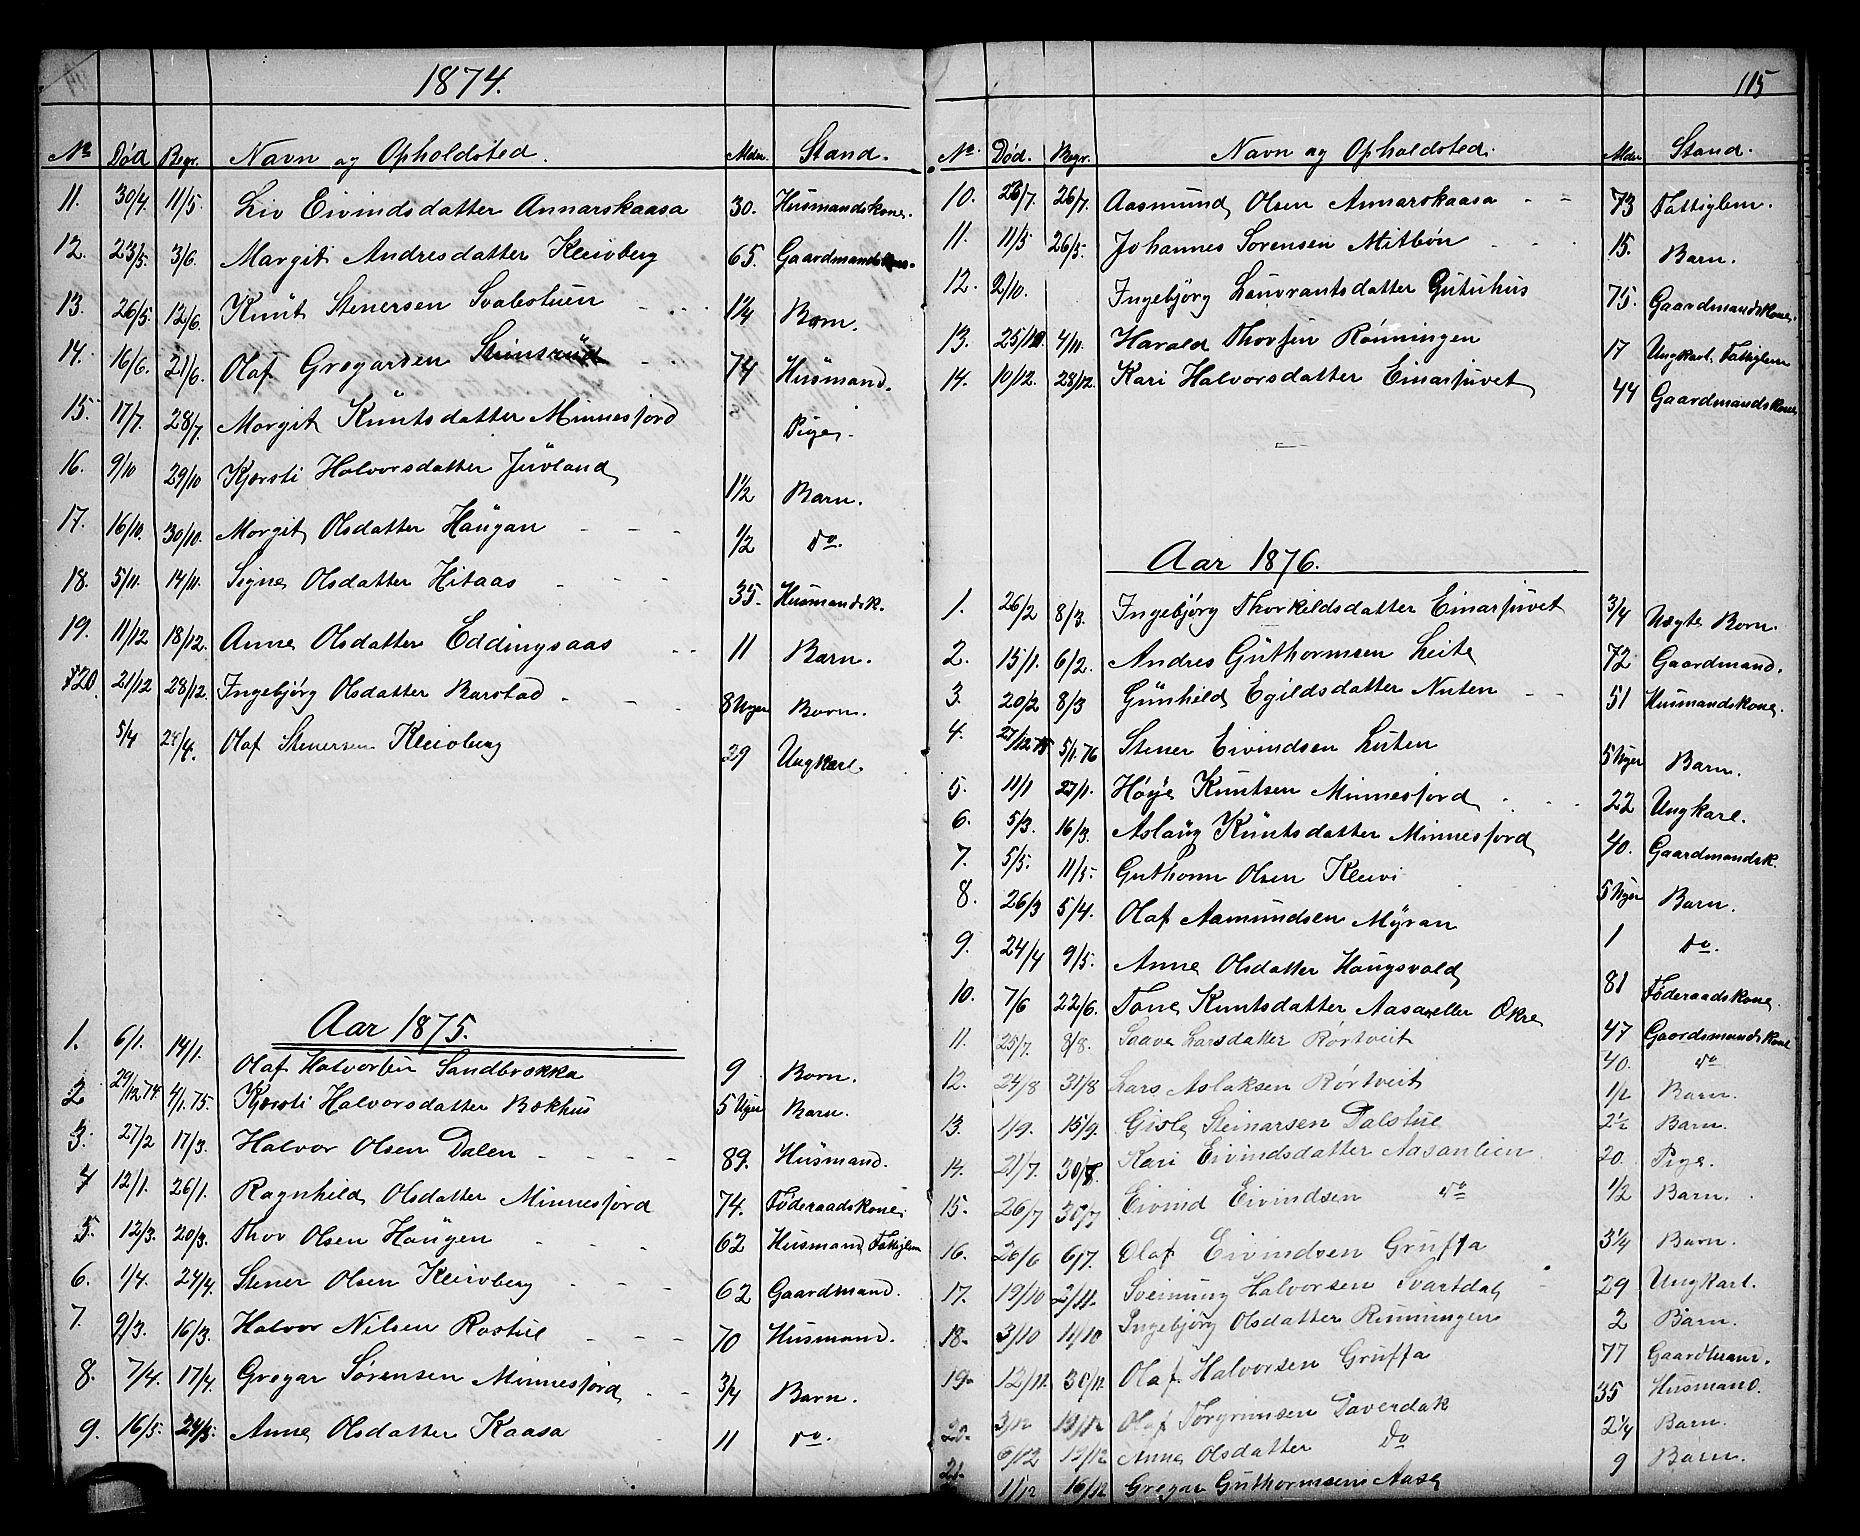 1874.
No Død Begr. Navn og Opholdsted. Alder. Stand.
11. 30/4. 11/5. Liv Eivindsdatter Annarskaasa 30. Husmandskone.
12. 23/5. 3/6. Margit Andresdatter Kleivberg 65. Gaardmandskone.
13. 26/5. 12/6. Knut Stenersen Svalestuen 1 1/4 Barn.
14. 16/6. 21/6. Olaf Gregarsen 74 Husmand.
15. 17/7. 28/7. Margit Knutsdatter Minnesjord Pige.
16. 9/10 29/10 Kjersti Halvorsdatter Juvland 1 1/2 Barn.
17. 16/10. 30/10. Margit Olsdatter Haugan 1/2 do.
18. 5/11. 14/11. Signe Olsdatter Hitaas 35. Husmandsk.
19. 11/12 18/12. Anne Olsdatter Eddingsaas 11 Barn.
20. 21/12 28/12. Ingebjørg Olsdatter Barstad 8 Uger Barn.
5/4 24/4. Olaf Stenersen Kleivberg 29 Ungkarl.
Aar 1875.
1. 6/1. 14/1. Olaf Halvorsen Sandbrokka 9 Barn.
2 29/12 74. 4/1. 75. Kjersti Halvorsdatter Bokhus 5 Uger Barn.
3. 27/2 17/3. Halvor Olsen Dalen 89. Husmand.
4 12/1. 26/1. Ragnhild Olsdatter Minnesjord 74. Føderaadskone.
5. 12/3. 20/3. Thor Olsen Haugen 62 Husmand Fattiglem
6. 1/4. 24/4. Stener Olsen Kleivberg 62 Gaardmand.
7. 9/3. 16/3. Halvor Nilsen Rostul 70 Husmand.
8. 7/4. 17/4. Gregar Sørensen Minnesjord 3/4 Barn.
9. 16/5. 24/5. Anne Olsdatter Kaasa 11 do.
115
No. Død. Begr. Navn og Opholdsted. Alder Stand.
10. 23/7. 26/7. Aasmund Olsen Annarskaasa 73 Fattiglem.
11. 11/5 26/5. Johannes Sorensen Mitbøn 15. Barn.
12. 2/10. Ingebjørg Lauvrantsdatter Gutuhus 75. Gaardmandskone.
13. 25/10. 4/11. Harald Thorsen Rønningen 17 Ungkarl. Fattiglem
14. 10/12. 28/12. Kari Halvorsdatter Einarjuvet 44 Gaardmandskone
Aar 1876.
1. 26/2 8/3. Ingebjørg Thorkildsdatter Einarjuvet 3/4 Uægte Barn.
2. 15/1. 6/2. Andres Guthormsen Leite 72 Gaardmand.
3. 20/2 8/3 Gunhild Egildsdatter Nuten 51 Husmandskone.
4. 27/12 75 5/1. 76 Stener Eivindsen Luten 5 Uger Barn.
5. 11/1 27/1. Høye Knutsen Minnesjord 22 Ungkarl.
6. 5/3. 16/3. Aslaug Knutsdatter Minnesjord 40. Gaardmandsk.
7. 5/5. 11/5. Guthorm Olsen Kleivi 5 Uger Barn.
8. 26/3 5/4. Olaf Aamundsen Myran 1 do.
9. 24/4 9/5. Anne Olsdatter Haugsvald 81 Føderaadskone.
10. 7/6 22/6. Tone Knutsdatter Aasa eller Økre 47 Gaardsmandskone
11. 25/7. 8/8. Saave Larsdatter Rørtveit 40. do
12. 24/8 31/8 Lars Aslaksen Rørtveit 1/2 Barn.
13. 1/9. 15/9. Gisle Steinarsen Dalstul 2 1/2 Barn.
14. 21/7. 30/7. Kari Eivindsdatter Aasanlien 20. Pige.
15. 26/7 30/7 Eivind Eivindsen do 1/2 Barn.
16. 26/6 6/7. Olaf Eivindsen Gruffa 3 1/4 Barn.
17. 19/10 2/11. Sveinung Halvorsen Svartdal 29 Ungkarl.
18. 3/10 14/10 Ingebjørg Olsdatter Runningen 2 Barn.
19. 12/11. 30/11. Olaf Halvorsen Gruffa 77 Gaardmand.
20. 3/12 13/12 Olaf Torgrimsen Daverdak 35 Husmand.
6/12 12/12 Anne Olsdatter Do 2 1/4 Barn.
21. 1/12 16/12 Gregar Guthormsen Aase 9 Barn.